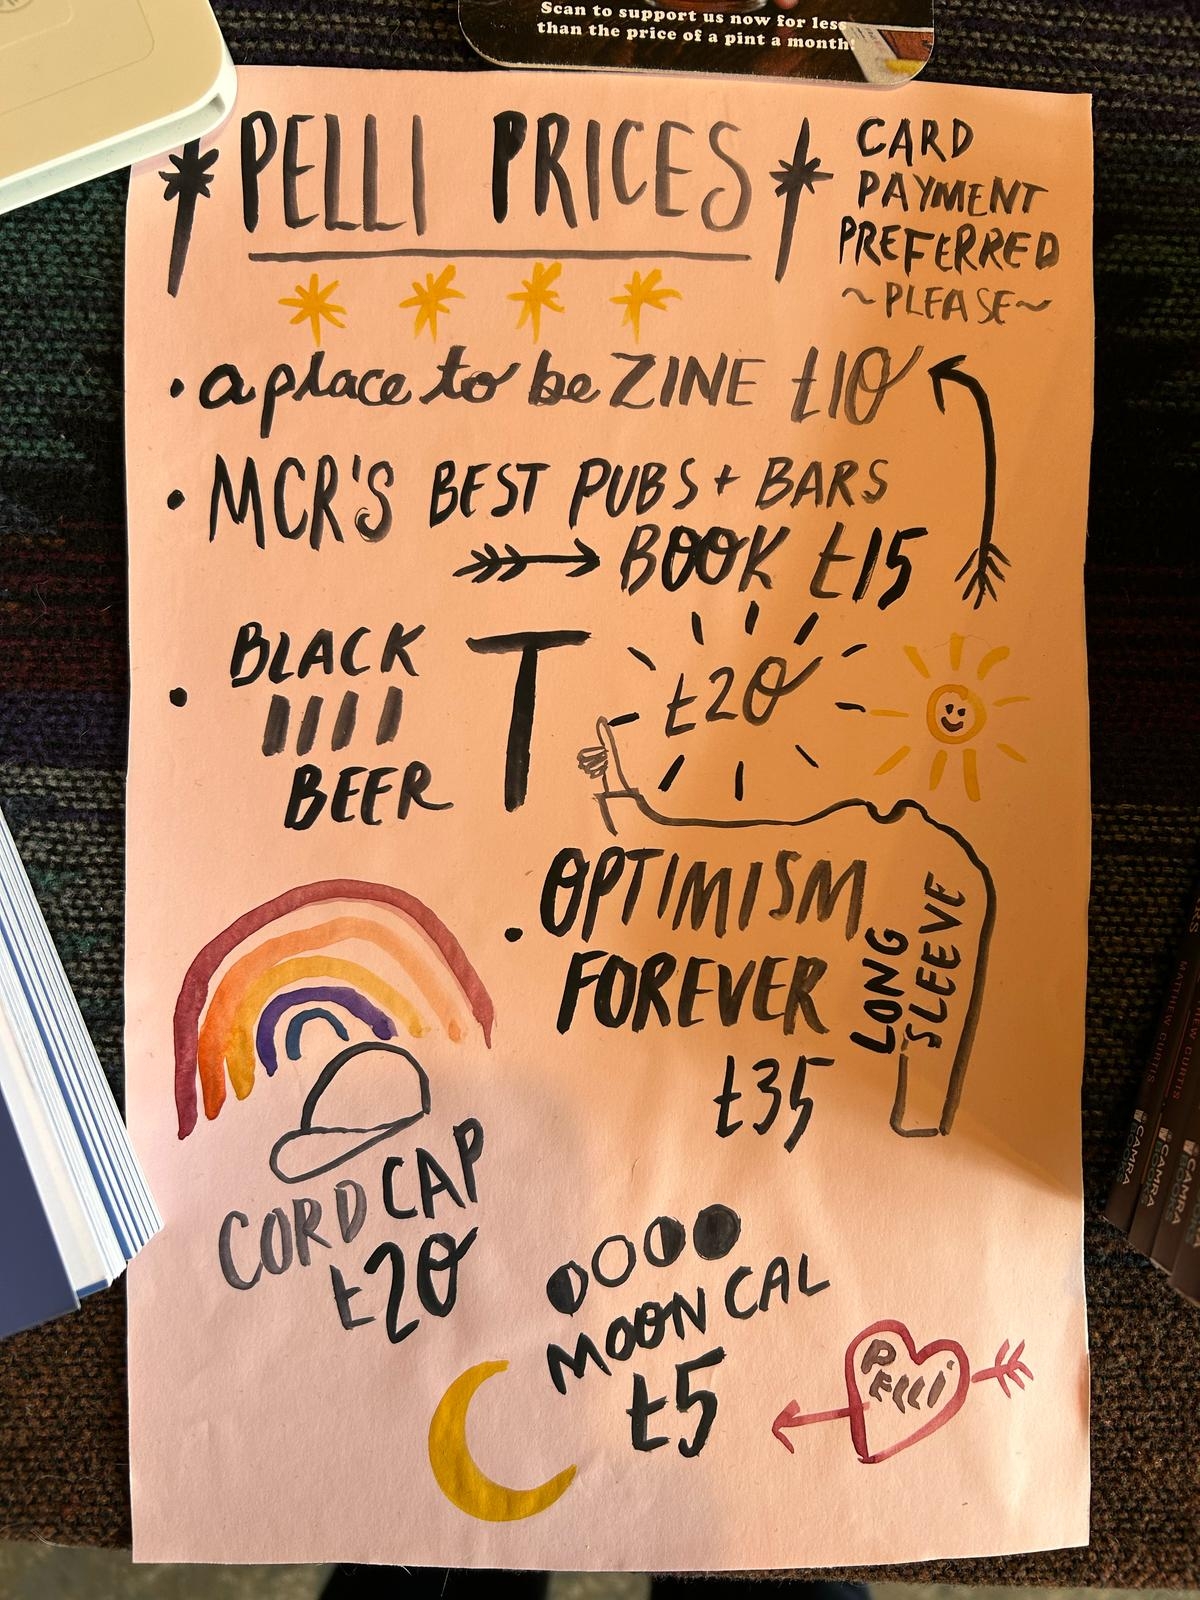 Scan to support us now for less
than the price of a pint a month!
PELLI PRICES
CARD
PAYMENT
PREFERRED
~PLEASE~
• a place to be ZINE £10
• MCR'S BEST PUBS + BARS
BOOK £15
• BLACK
BEER
T £20
• OPTIMISM
FOREVER
LONG
SLEEVE
£35
CORD CAP
£20
MOON CAL
£5
PELLI
MATTHEW CURTIS
MATTHEW CURTIS
CAMRA
BOOKS
CAMRA
BOOKS
CAMRA